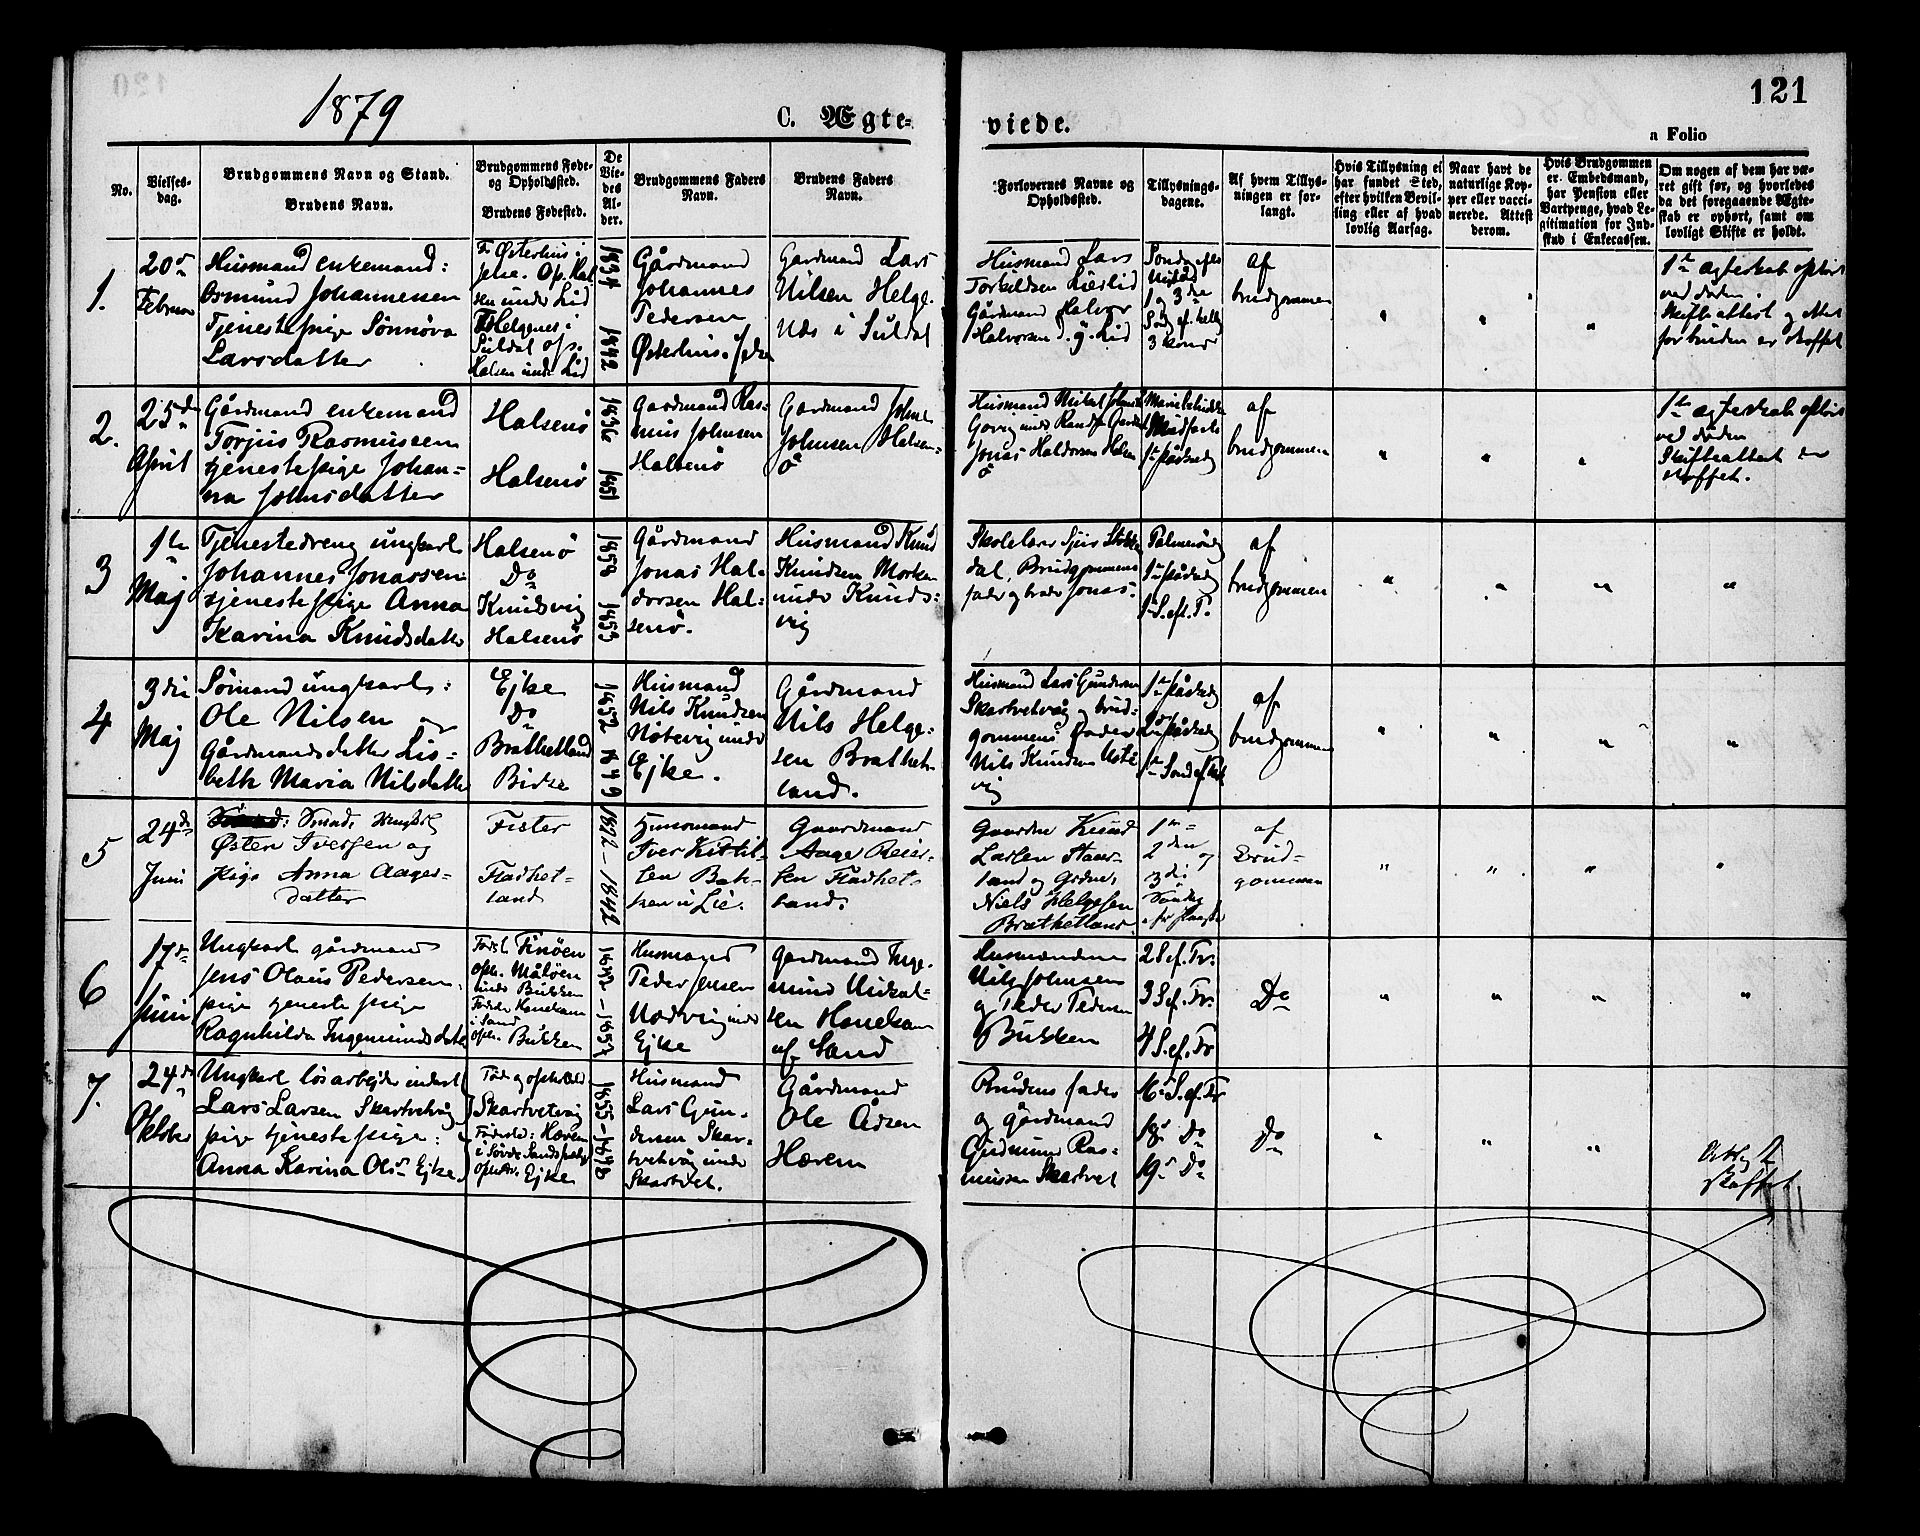 1879
C. Ægte-
viede.
121
a Folio
No.
Vielses-
dag.
Brudgommens Navn og Stand.
Brudens Navn.
Brudgommens Føde-
og Opholdssted.
Brudens Fødested.
De
Vie-
des
Al-
der.
Brudgommens Faders
Navn.
Brudens Faders
Navn.
Forlovernes Navne og
Opholdssted.
Tillysnings-
dagene.
Af hvem Tillys-
ningen er for-
langt.
Hvis Tillysning ei
har fundet Sted,
efter hvilken Bevil-
ling eller af hvad
lovlig Aarsag.
Naar havt de
naturlige Kop-
per eller vacci-
nerede. Attest
derom.
Hvis Brudgommen
er Embedsmand,
har Pension eller
Vartpenge, hvad Le-
gitimation for Ind-
skud i Enkecassen.
Om nogen af dem har væ-
ret gift før, og hvorledes
da det foregaaende Ægte-
skab er ophørt, samt om
lovligt Skifte er holdt.
1.
20
Februar
Husmand enkemand:
Osmund Johannessen
Tjenestepige Sønnøva
Larsdatter
F. Østerhus i
Jelse. Op. Hal
sen under Lid
F. Helgenes i
Suldal op.
Halsen under Lid
1834 1842
Gårdmand
Johannes
Pedersen
Østerhus. Jelse
Gardmand Lars
Nilsen Helge.
Næs i Suldal
Husmand Lars
Torkeldsen Liedlid
Gårdmand Halvor
Halvorsen d. y. Lid
Søndag efter
Nytår
1 og 3die
Sønd. ef. hellig
3 konge
af
brudgommen
1te ægteskab opløst
ved døden.
Skifteattest og Attest
for bruden er skaffet
2.
25d
April
Gårdmand enkemand
Torjus Rasmussen
tjenestepige Johan-
na Johnsdatter
Halsenø
Halsenø
1836 1851
Gardmand Ras-
mus Johnsen
Halsenø
Gardmand John
Johnsen Halsen-
ø
Husmand Mikal Johnsen
under Gardm
Jonas Haldorsen Halsen
ø
Marie bebudelse
Midfaste
1 påskedag
af
brudgommen
1te ægteskab opløst
ved døden
Skifteattest er
skaffet.
3
1te
Maj
Tjenestedreng ungkarl
Johannes Jonassen:
tjenestepige Anna
Karina Knudsdatter
Halsenø
Do
Knudsvig
Halsenø
1858 1853
Gårdmand
Jonas Hal-
dorsen Hal-
senø.
Husmand Knud
Knudsen Morken
under Knuds-
vig
Skolelærer Sjur Stokke
dal, Brudgommens
fader og broder Jonas.
Palmesøndag
1 påskedag
1 S. eft. P.
af
brudgommen
4
3die
Maj
Sømand ungkarl:
Ole Nilsen og
Gårdmandsdatter Lis-
beth Maria Nilsdatter
Ejke
Do
Brathetland
Birke
1852 1849
Husmand
Nils Knudsen
Notevig under
Ejke.
Gårdmand
Nils Helge-
sen Brathet-
land.
Husmand Lars Gundersen
Skartvetvåg og brud-
gommens Fader
Nils Knudsen Note
vig
1 påskedag
2 påskedag
1 Sønd eft Påsk
af
brudgommen
5
24d
Juni
Østen Iversen og
Pige Anna Aager-
datter
Fister
Fladhet-
land
1822–1842
Huusmand
Iver Kittil-
sen Bak-
ken i Lie.
Gaardmand
Aage Reier-
sen Fladhet-
land.
Gaardm Knud
Larsen Haur-
land og Grdm,
Niels Helgesen
Brathetland.
1ste
2den og
3di
Søndag
af
Brud-
gommen
6
17d
Juni
Ungkarl gårdmand
Jens Olaus Pedersen.
pige tjenestepige
Ragnhilda Ingemundsdatter
Fødst. Finøen
oph. Måløen
under Bukken
Fødst. Honekam
i Sand
oph. Bukken
1852–1857
Husmand
Peder Jensen
Nodvig under
Ejke
Gardmand Inge.
mund Mikal-
sen Honekam
af Sand
Husmændene
Nils Johnsen
og Peder Pedersen
Bukken
2 S. ef. Tr.
3 S. ef. Tr.
4 S. ef. Tr
Do
7.
24d
Oktober
Ungkarl løsarbejder inderst
Lars Larsen Skartvetvåg
pige tjenestepige:
Anna Karina Olsr Ejke
Føde og opholdssted
Skartvetvåg
Fødested: Hærem
i Søvde Sands præstg
opholdst. Ejke
1855–1848
Husmand
Lars Gun-
dersen Skar-
tvetvåg under
Skartvet.
Gårdmand
Ole Ådsen
Hærem
Brudens fader
og gårdmand
Gudmund Ras-
mussen Skartvet
16 S. ef. Tr
18 Do
19 Do
Do
Attest
skaffet